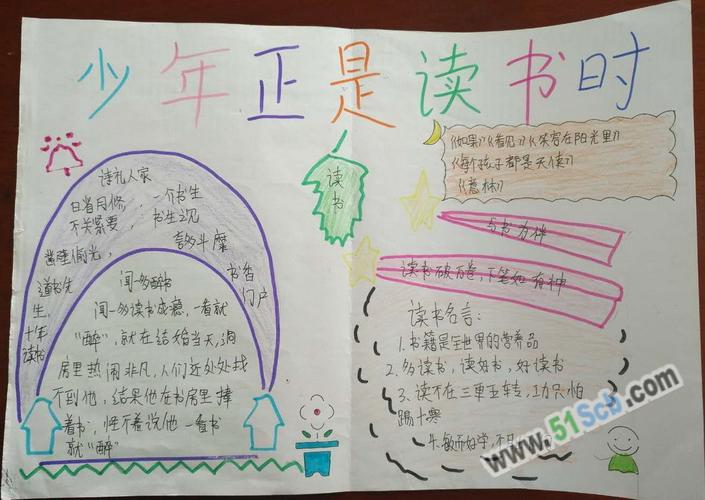 少年正是读书时
诗礼人家
日省月修，一个书生
不关紧要，书生之见
多斗
凿壁偷光，
书香
门户
道书先
生，
十年
读书
闻一多醉书
闻一多读书成瘾，一看就
"醉"，就在结婚当天，洞
房里热闹非凡，人们近处处找
不到他，结果他在书房里捧
着书，怪不着说他一看书
就"醉"
读书
《如果》《看见》在阳光里》
《每个孩子都是天使》
《意林》
与书为伴
读书破万卷，下笔如有神
读书名言：
1.书籍是全世界的营养品
2.多读书，读好书，好读书
3.读不在三更五车，功只怕
踢十寒
4.敏而好学，不
www.51Scb.com